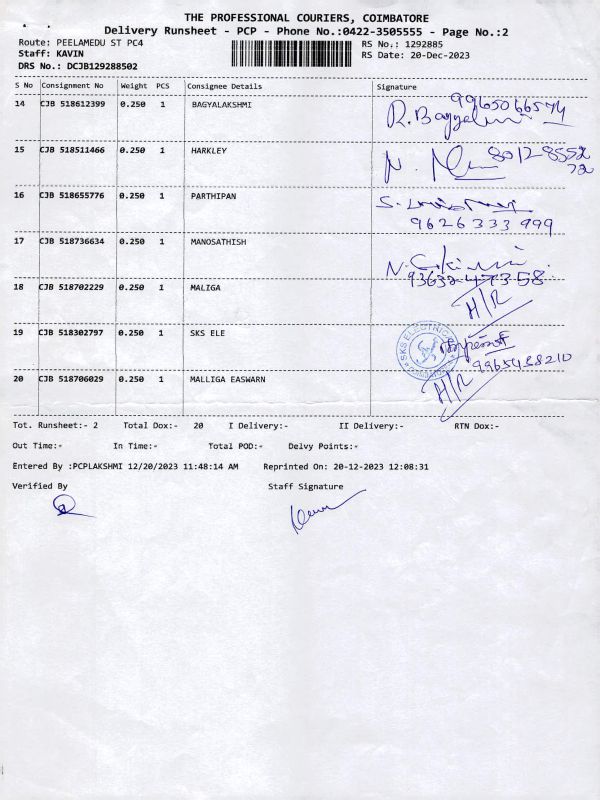 THE PROFESSIONAL COURIERS, COIMBATORE
Delivery Runsheet - PCP - Phone No.:0422-3505555 - Page No.:2
Route: PEELAMEDU ST PC4
RS No.: 1292885
Staff: KAVIN
RS Date: 20-Dec-2023
DRS No.: DCJB129288502
S No Consignment No Weight PCS Consignee Details Signature
14 CJB 518612399 0.250 1 BAGYALAKSHMI 9965066574
15 CJB 518511466 0.250 1 HARKLEY
16 CJB 518655776 0.250 1 PARTHIPAN
9626333999
17 CJB 518736634 0.250 1 MANOSATHISH
18 CJB 518702229 0.250 1 MALIGA
H/R
19 CJB 518302797 0.250 1 SKS ELE SKS ELECTRICAL
20 CJB 518706029 0.250 1 MALLIGA EASWARN H/R
Tot. Runsheet:- 2 Total Dox:- 20 I Delivery:- II Delivery:- RTN Dox:-
Out Time:- In Time:- Total POD:- Delvy Points:-
Entered By :PCPLAKSHMI 12/20/2023 11:48:14 AM Reprinted On: 20-12-2023 12:08:31
Verified By Staff Signature